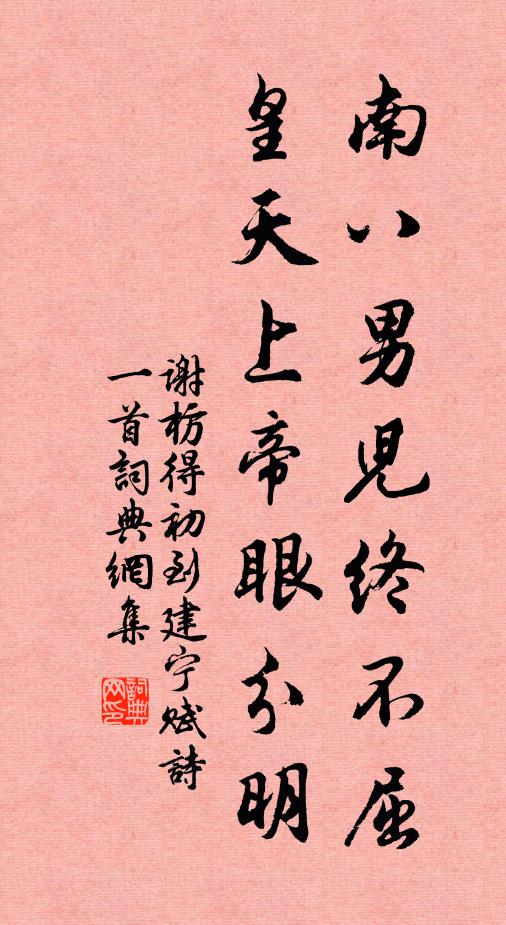 南八男兒終不屈
皇天上帝眼分明
谢枋得初到建宁賦詩
一首詞典網集
詞典
网印